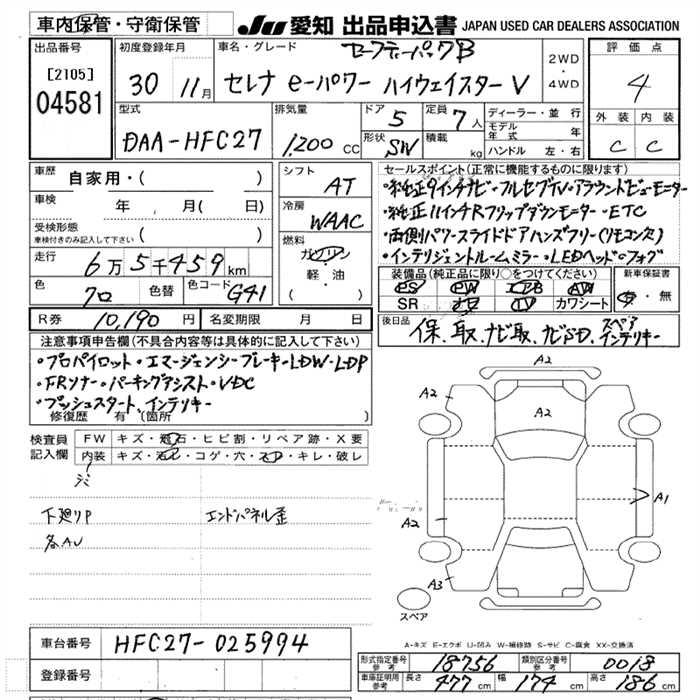 車内保管・守衛保管
JU 愛知 出品申込書 JAPAN USED CAR DEALERS ASSOCIATION
出品番号 [2105] 04581
初度登録年月 30 11月
車名・グレード セーフティーパックB
セレナ e-パワー ハイウェイスターV
2WD・4WD
評価点 4
外装 内装
C C
型式 DAA-HFC27
排気量 1,200 CC
ドア 5 定員 7人
形状 SW 積載 kg
ディーラー・並行
モデル年式 年
ハンドル 左・右
車歴 自家用・( )
車検 年 月( 日)
受検形態 車検付きのみ記入して下さい ( )
走行 6万5千459km
色 クロ 色替 色コード G41
シフト AT
冷房 WAAC
燃料 ガソリン 軽・油 ( )
セールスポイント(正常に機能するものに限ります)
・純正9インチナビ・フルセグTV・アラウンドビューモニター
・純正11インチRフリップダウンモニター・ETC
・両側パワースライドドアハンズフリー(リモコン欠)
・インテリジェントルームミラー・LEDヘッド・フォグ
装備品(純正品に限り○をつけてください)
PS PW エアB AW
SR ナビ TV カワシート
新車保証書 有・無
R券 10,190 円 名変期限 月 日
後日品 保、取、ナビ取、ナビSD、スペアインテリキー
注意事項申告欄(不具合内容等は具体的に記入して下さい)
・プロパイロット・エマージェンシーブレーキ・LDW・LDP
・FRソナー・パーキングアシスト・VDC
・プッシュスタート、インテリキー
修復歴 有(箇所
検査員記入欄
FW キズ・飛石・ヒビ割・リペア跡・X要
内装 キズ・汚レ・コゲ・穴・スレ・キレ・破レ
下廻りP エンドパネル歪
各AU
A2
A2
A2
A2
A1
A3
スペア
A-キズ E-エクボ U-凹み W-補修跡 S-サビ C-腐食 XX-交換済
車台番号 HFC27-025994
登録番号
形式指定番号 参考 18756 類別区分番号 参考 0018
車庫証明用 参考 長さ 477cm 幅 174cm 高さ 186cm